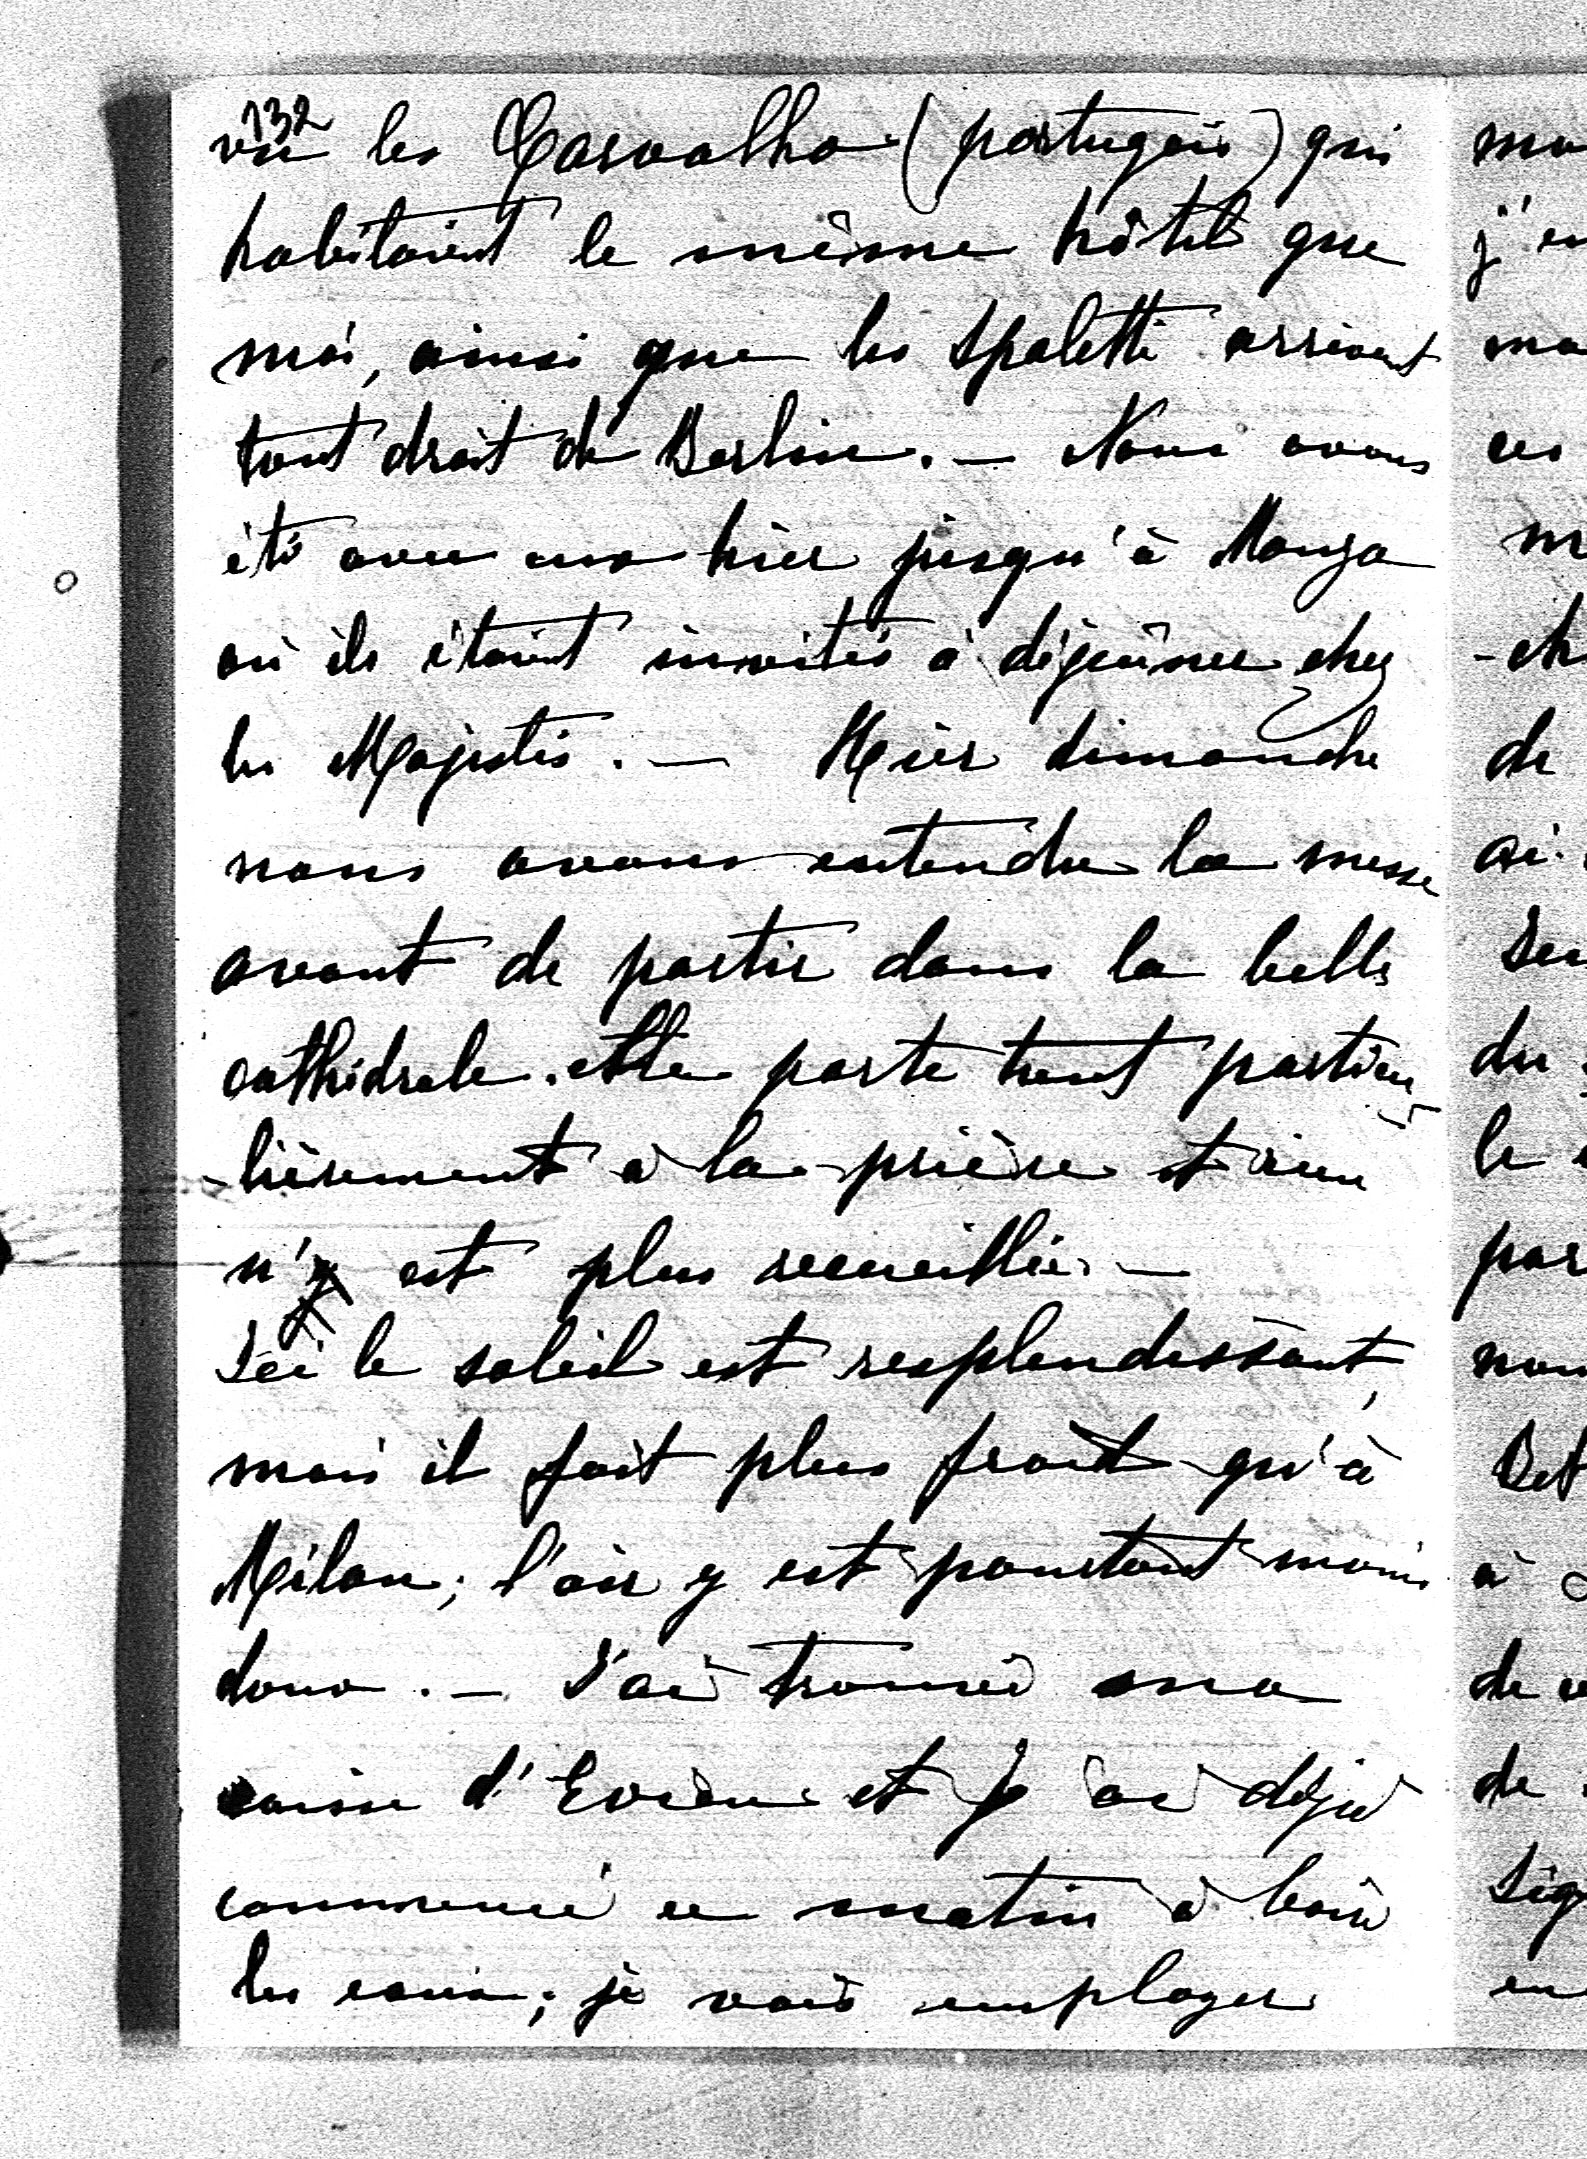 132
vu les Carvalho (portugais) qui
habitaient le même hôtel que
moi, ainsi que les Spaletti arrivant
tout droit de Berlin. — Nous avons
été avec eux hier jusqu'à Monza
où ils étaient invités à déjeûner chez
les Majestés. — Hier dimanche
nous avons entendu la messe
avant de partir dans la belle
cathédrale. Elle porte tout particu-
-lièrement à la prière et rien
n'y est plus recueilli. —
Ici le soleil est resplendissant,
mais il fait plus froid qu'à
Milan; l'air y est pourtant moins
doux. — J'ai trouvé ma
caisse d'Evian et j'ai déjà
commencé ce matin à boire
les eaux; je vais employer
mo
j'en
ma
ces
m
-ch
de
ai
Seu
du
le
par
nou
Bet
à
de v
de
Sig
en